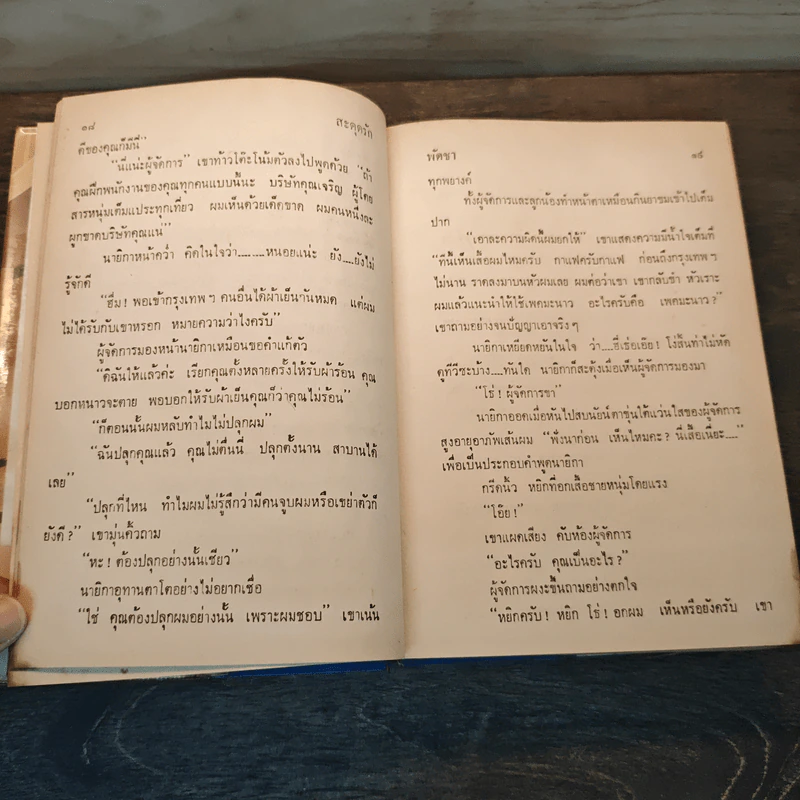 ๑๘
สะดุดรัก
ดีของคุณก็มีนี่”
“นี่แน่ะผู้จัดการ” เขาท้าวโต๊ะโน้มตัวลงไปพูดด้วย “ถ้า
คุณฝึกพนักงานของคุณทุกคนแบบนี้นะ บริษัทคุณเจริญ ผู้โดย
สารหนุ่มเต็มแประทุกเที่ยว ผมเห็นด้วยเด็ดขาด ผมคนหนึ่งละ
ผูกขาดบริษัทคุณแน่”
นายิกาหน้าคว่ำ คิดในใจว่า.........หนอยแน่ะ ยัง.....ยังไม่
รู้จักดี
“ฮึ่ม! พอเข้ากรุงเทพฯ คนอื่นได้ผ้าเย็นกันหมด แต่ผม
ไม่ได้รับกับเขาหรอก หมายความว่าไงครับ”
ผู้จัดการมองหน้านายิกาเหมือนขอคำแก้ตัว
“ดิฉันให้แล้วค่ะ เรียกคุณตั้งหลายครั้งให้รับผ้าร้อน คุณ
บอกหนาวจะตาย พอบอกให้รับผ้าเย็นคุณก็ว่าคุณไม่ร้อน”
“ก็ตอนนั้นผมหลับทำไมไม่ปลุกผม”
“ฉันปลุกคุณแล้ว คุณไม่ตื่นนี่ ปลุกตั้งนาน สาบานได้
เลย”
“ปลุกที่ไหน ทำไมผมไม่รู้สึกว่ามีคนจูบผมหรือเขย่าตัวก็
ยังดี?” เขามุ่นคิ้วถาม
“หะ! ต้องปลุกอย่างนั้นเชียว”
นายิกาอุทานตาโตอย่างไม่อยากเชื่อ
“ใช่ คุณต้องปลุกผมอย่างนั้น เพราะผมชอบ” เขาเน้น
พัดชา
๑๙
ทุกพยางค์
ทั้งผู้จัดการและลูกน้องทำหน้าตาเหมือนกินยาขมเข้าไปเต็ม
ปาก
“เอาละความผิดนี้ผมอกให้” เขาแสดงความมีน้ำใจเต็มที่
“ทีนี้เห็นเสื้อผมไหมครับ กาแฟครับกาแฟ ก่อนถึงกรุงเทพฯ
ไม่นาน ราดลงมาบนหัวผมเลย ผมต่อว่าเขา เขากลับขำ หัวเราะ
ผมแล้วแนะนำให้ใช้เพคมะนาว อะไรครับคือ เพคมะนาว?”
เขาถามอย่างจนปัญญาเอาจริงๆ
นายิกาเหยียดหยันในใจ ว่า.....ฮี่เธ่อเอ๊ย! โง่สิ้นท่าไม่หัด
ดูทีวีซะบ้าง.....ทันใด นายิกาก็สะดุ้งเมื่อเห็นผู้จัดการมองมา
“โธ่! ผู้จัดการขา”
นายิกาออดเมื่อหันไปสบนัยน์ตาขุ่นใต้แว่นใสของผู้จัดการ
สูงอายุอาภัพเส้นผม “ฟังนาก่อน เห็นไหมคะ? นี่เสื้อเนี่ยะ.....”
เพื่อเป็นประกอบคำพูดนายิกา
กรีดนิ้ว หยิกที่อกเสื้อชายหนุ่มโดยแรง
“โอ๊ย!”
เขาแผดเสียง คับห้องผู้จัดการ
“อะไรครับ คุณเป็นอะไร?”
ผู้จัดการผงะขึ้นถามอย่างตกใจ
“หยิกครับ! หยิก โธ่! อกผม เห็นหรือยังครับ เขา